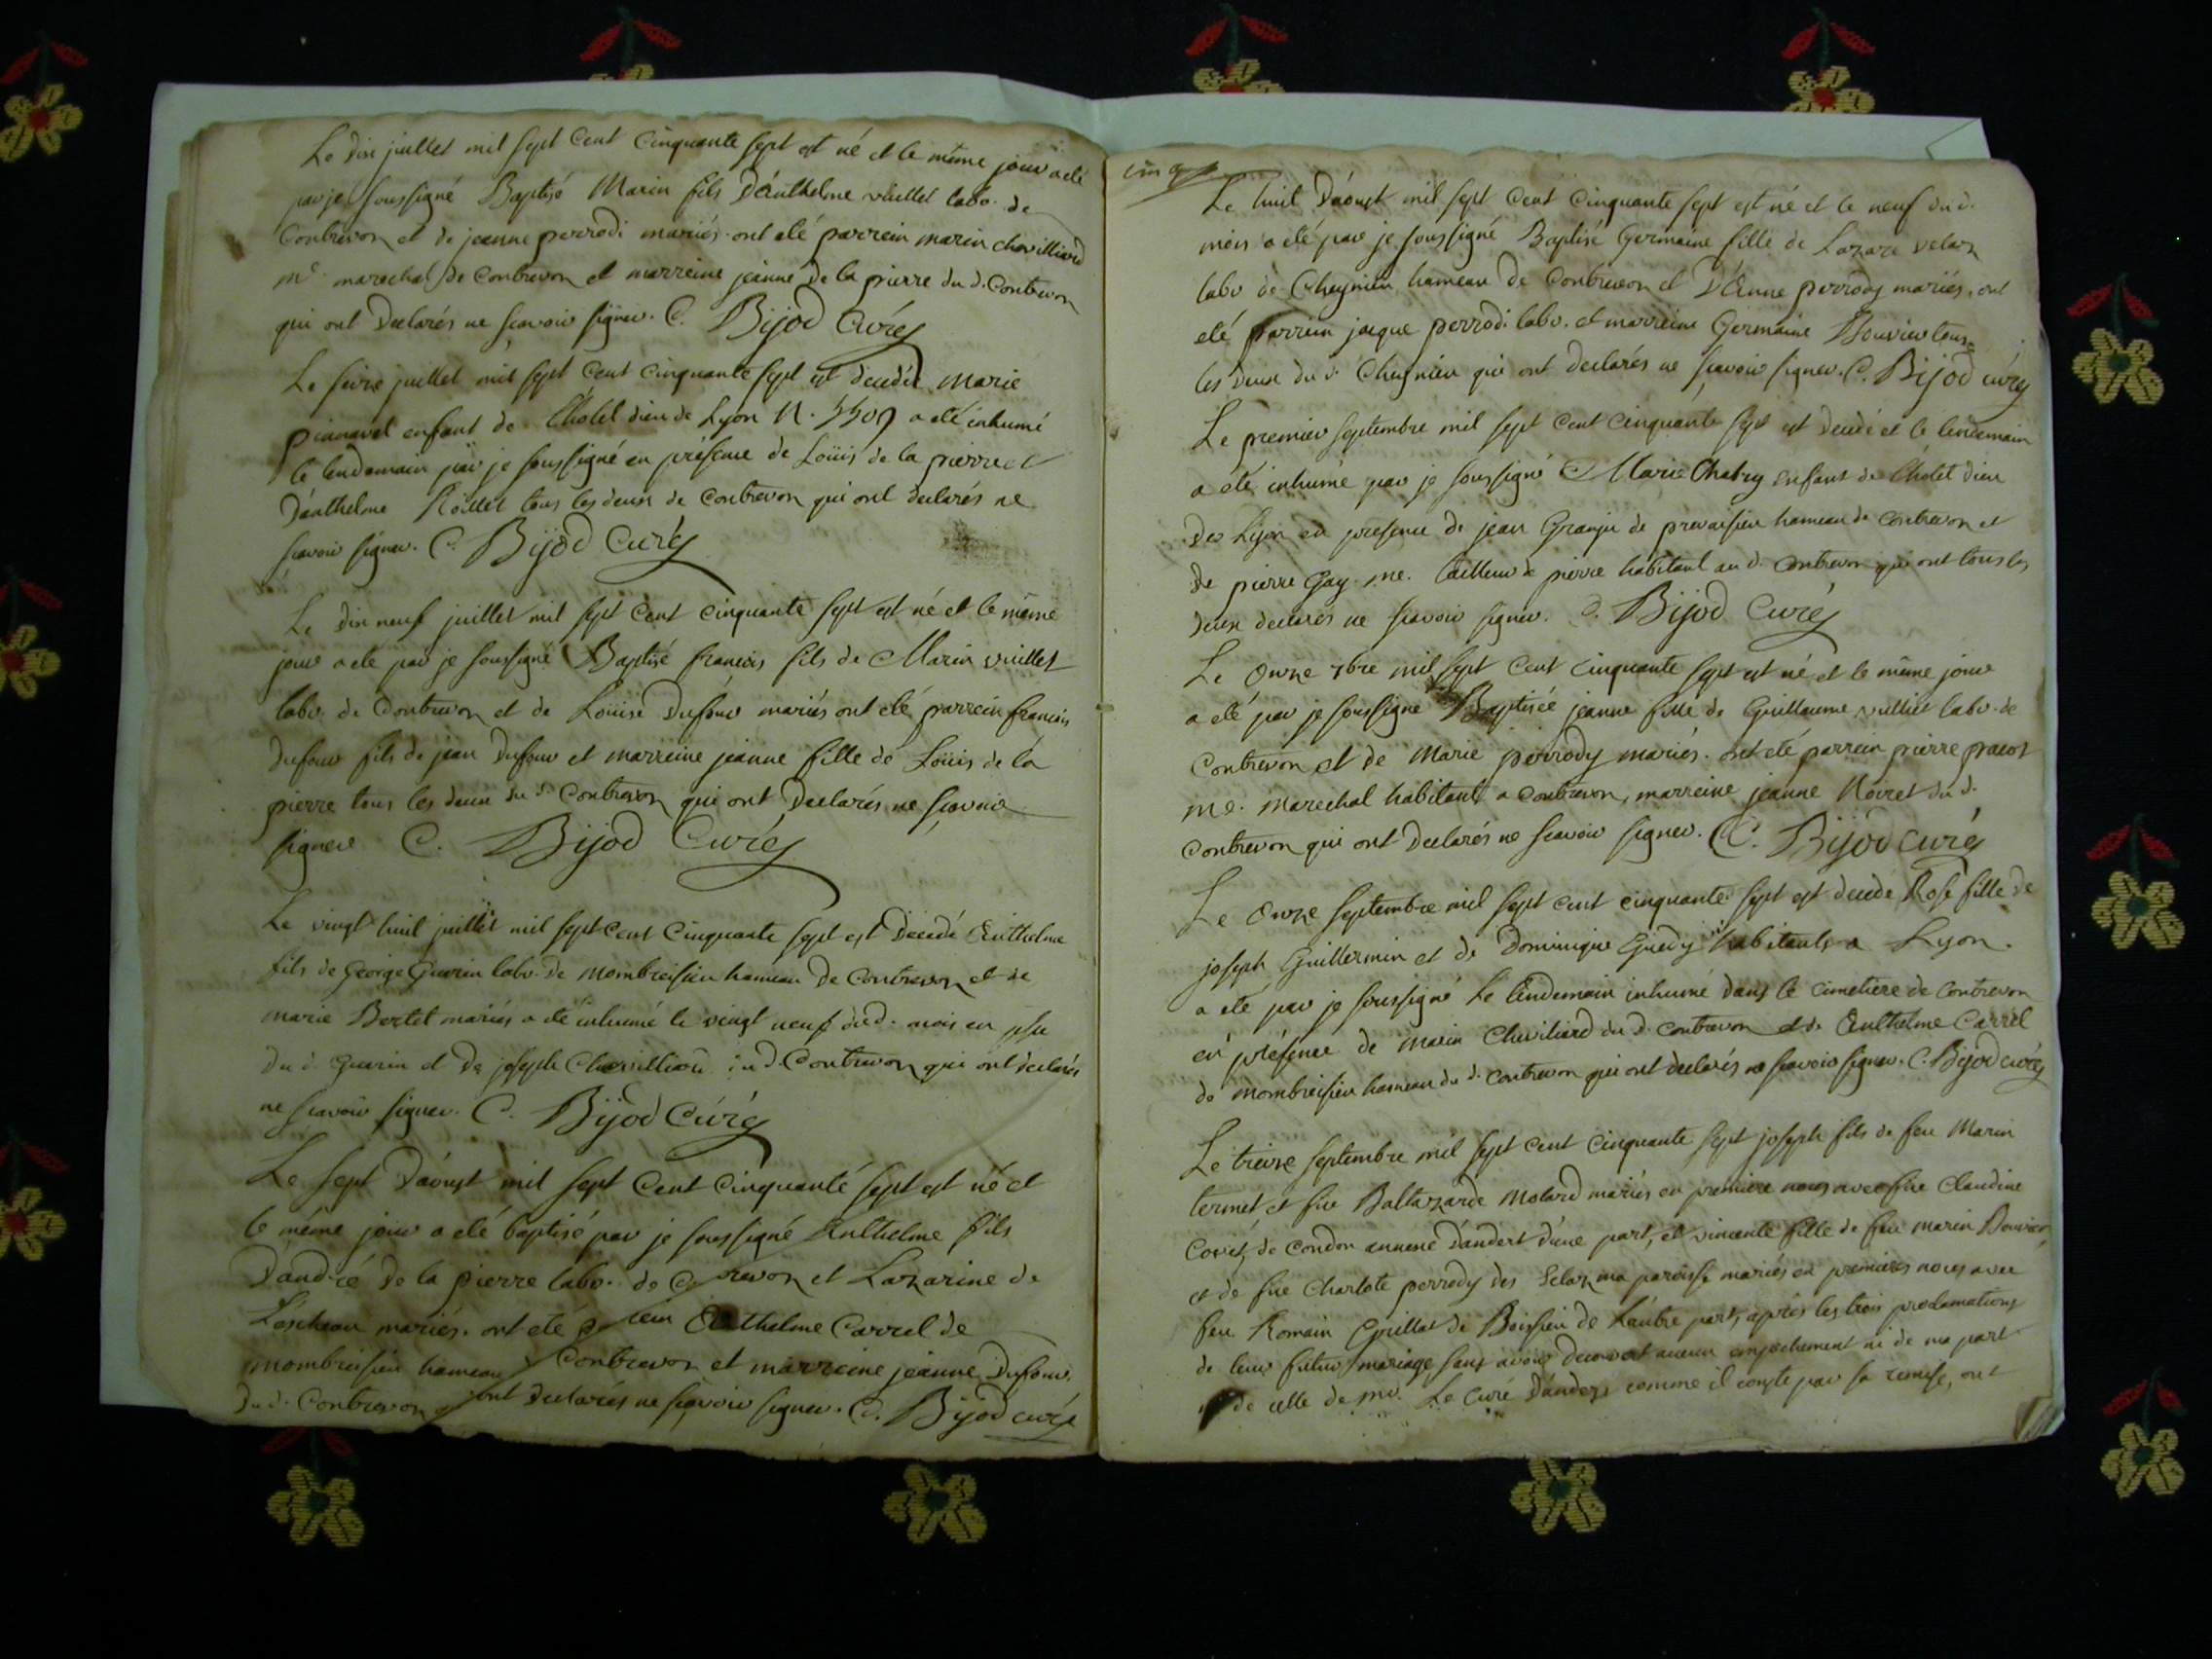 Le dix juillet mil sept cent cinquante sept est né et le même jour a eté
par je soussigné Baptisé Marin fils D'anthelme vuillet labo. de
Contrevoz et de jeanne perrodi mariés. ont eté parrein marin chevilliard
me. marechal de Contrevoz et marreine jeanne De la pierre du d. Contrevoz
qui ont Declarés ne scavoir signer. C. Bijod Curéz
Le seize juillet mil sept cent cinquante sept est decedée marie
enfant de l'hotel dieu de Lyon N. a eté inhumé
le lendemain par je soussigné en présence de Loüis de la pierre et
D'anthelme tous les deux de Contrevoz qui ont declarés ne
scavoir signer. C. Bijod Curéz
Le dix neuf juillet mil sept cent cinquante sept est né et le même
jour a eté par je soussigné Baptisé francois fils de Marin vuillet
labo. de Contrevoz et de Loüise Dufour mariés ont eté parrein francois
Dufour fils de jean Dufour et marreine jeanne fille de Loüis de la
pierre tous les deux du d. Contrevoz qui ont Declarés ne scavoir
signer C. Bijod Curéz
Le vingt huit juillet mil sept cent cinquante sept est Decedé Anthelme
fils de George Guerin labo. de Mombreisieu hameau de Contrevoz et de
marie Bertet mariés a eté inhumé le vingt neuf dud. mois en pñce
du d. Guerin et De joseph Chevilliard du d. Contrevoz qui ont declarés
ne scavoir signer. C. Bijod Curéz
Le sept D'aoust mil sept cent cinquante sept est né et
le même jour a eté baptisé par je soussigné Anthelme fils
D'andré De la pierre labo. de C revoz et Lazarine de
mariés. ont eté p rein Anthelme Carrel de
mombreisieu hameau Contrevoz et marreine jeanne Dufour
Du d. Contrevoz ont Declarés ne scavoir signer. C. Bijod curéz
Le huit D'aoust mil sept cent cinquante sept est né et le neuf du d.
mois a eté par je soussigné Baptisé Germaine fille de Lazare velaz
labo de Cheynieu hameau de Contrevoz et D'Anne perrody mariés, ont
eté parrein jacque perrodi labo. et marreine Germaine Bouvier tous
les deux du d. Cheynieu qui ont declarés ne scavoir signer. C. Bijod curéz
Le premier septembre mil sept cent cinquante sept est decedé et le lendemain
a eté inhumé par je soussigné Marie Chabry enfant de l'hotel dieu
De Lyon en presence de jean Granju de preveisieu hameau de Contrevoz et
De pierre Gay me. tailleur de pierre habitant au d. Contrevoz qui ont tous les
deux declarés ne scavoir signer. C. Bijod Curéz
Le Onze 7bre mil sept cent cinquante sept est né et le même jour
a eté par je soussigné Baptisée jeanne fille de Guillaume vulliet labo. de
Contrevoz et de Marie perrody mariés. ont eté parrein pierre
me. marechal habitant a Contrevoz, marreine jeanne Noiret du d.
Contrevoz qui ont Declarés ne scavoir signer. C. Bijod curéz
Le Onze septembre mil sept cent cinquante sept est decedé Rose fille de
joseph Guillermin et de Dominique habitants a Lyon.
a eté par je soussigné Le lendemain inhumé dans le cimetiere de Contrevoz
en présence de Marin Chevilliard du d. Contrevoz et de Anthelme Carrel
de mombreisieu hameau du d. Contrevoz qui ont declarés ne scavoir signer. C. Bijod curéz
Le treize septembre mil sept cent cinquante sept joseph fils de feu Marin
termet et füe Baltazarde Molard mariés en premiere noces avec füe Claudine
de Condon annexe D'andert d'une part, et vincente fille de feu marin Bouvier
et de füe Charlote perrody des velaz ma paroisse mariés en premieres noces avec
feu Romain Grillat de Boissieu de L'autre part, après les trois proclamations
de leur futur mariage sans avoir decouvert aucun empechement ni de ma part
ni de celle de mr. Le Curé D'andert comme il conste par sa remise, ont